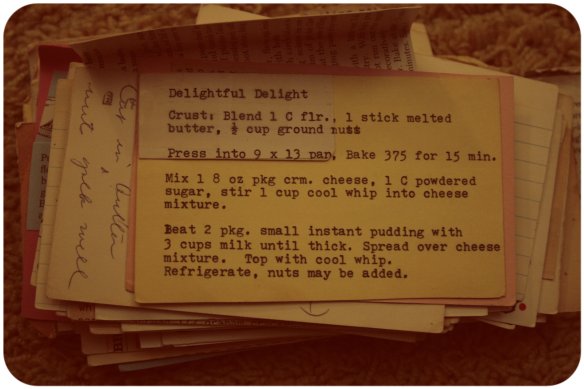 Delightful Delight
Crust: Blend 1 C flr., 1 stick melted
butter, ½ cup ground nuts
Press into 9 x 13 pan, Bake 375 for 15 min.
Mix 1 8 oz pkg crm. cheese, 1 C powdered
sugar, stir 1 cup cool whip into cheese
mixture.
Beat 2 pkg. small instant pudding with
3 cups milk until thick. Spread over cheese
mixture.  Top with cool whip.
Refrigerate, nuts may be added.
Cut in butter
well